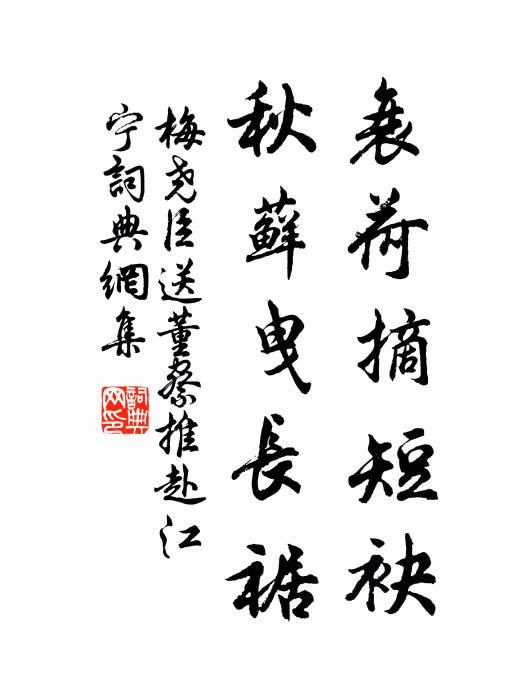 衰荷摘短袂
秋蘚曳長裾
梅尧臣送董察推赴江
宁詞典網集
詞典
网印